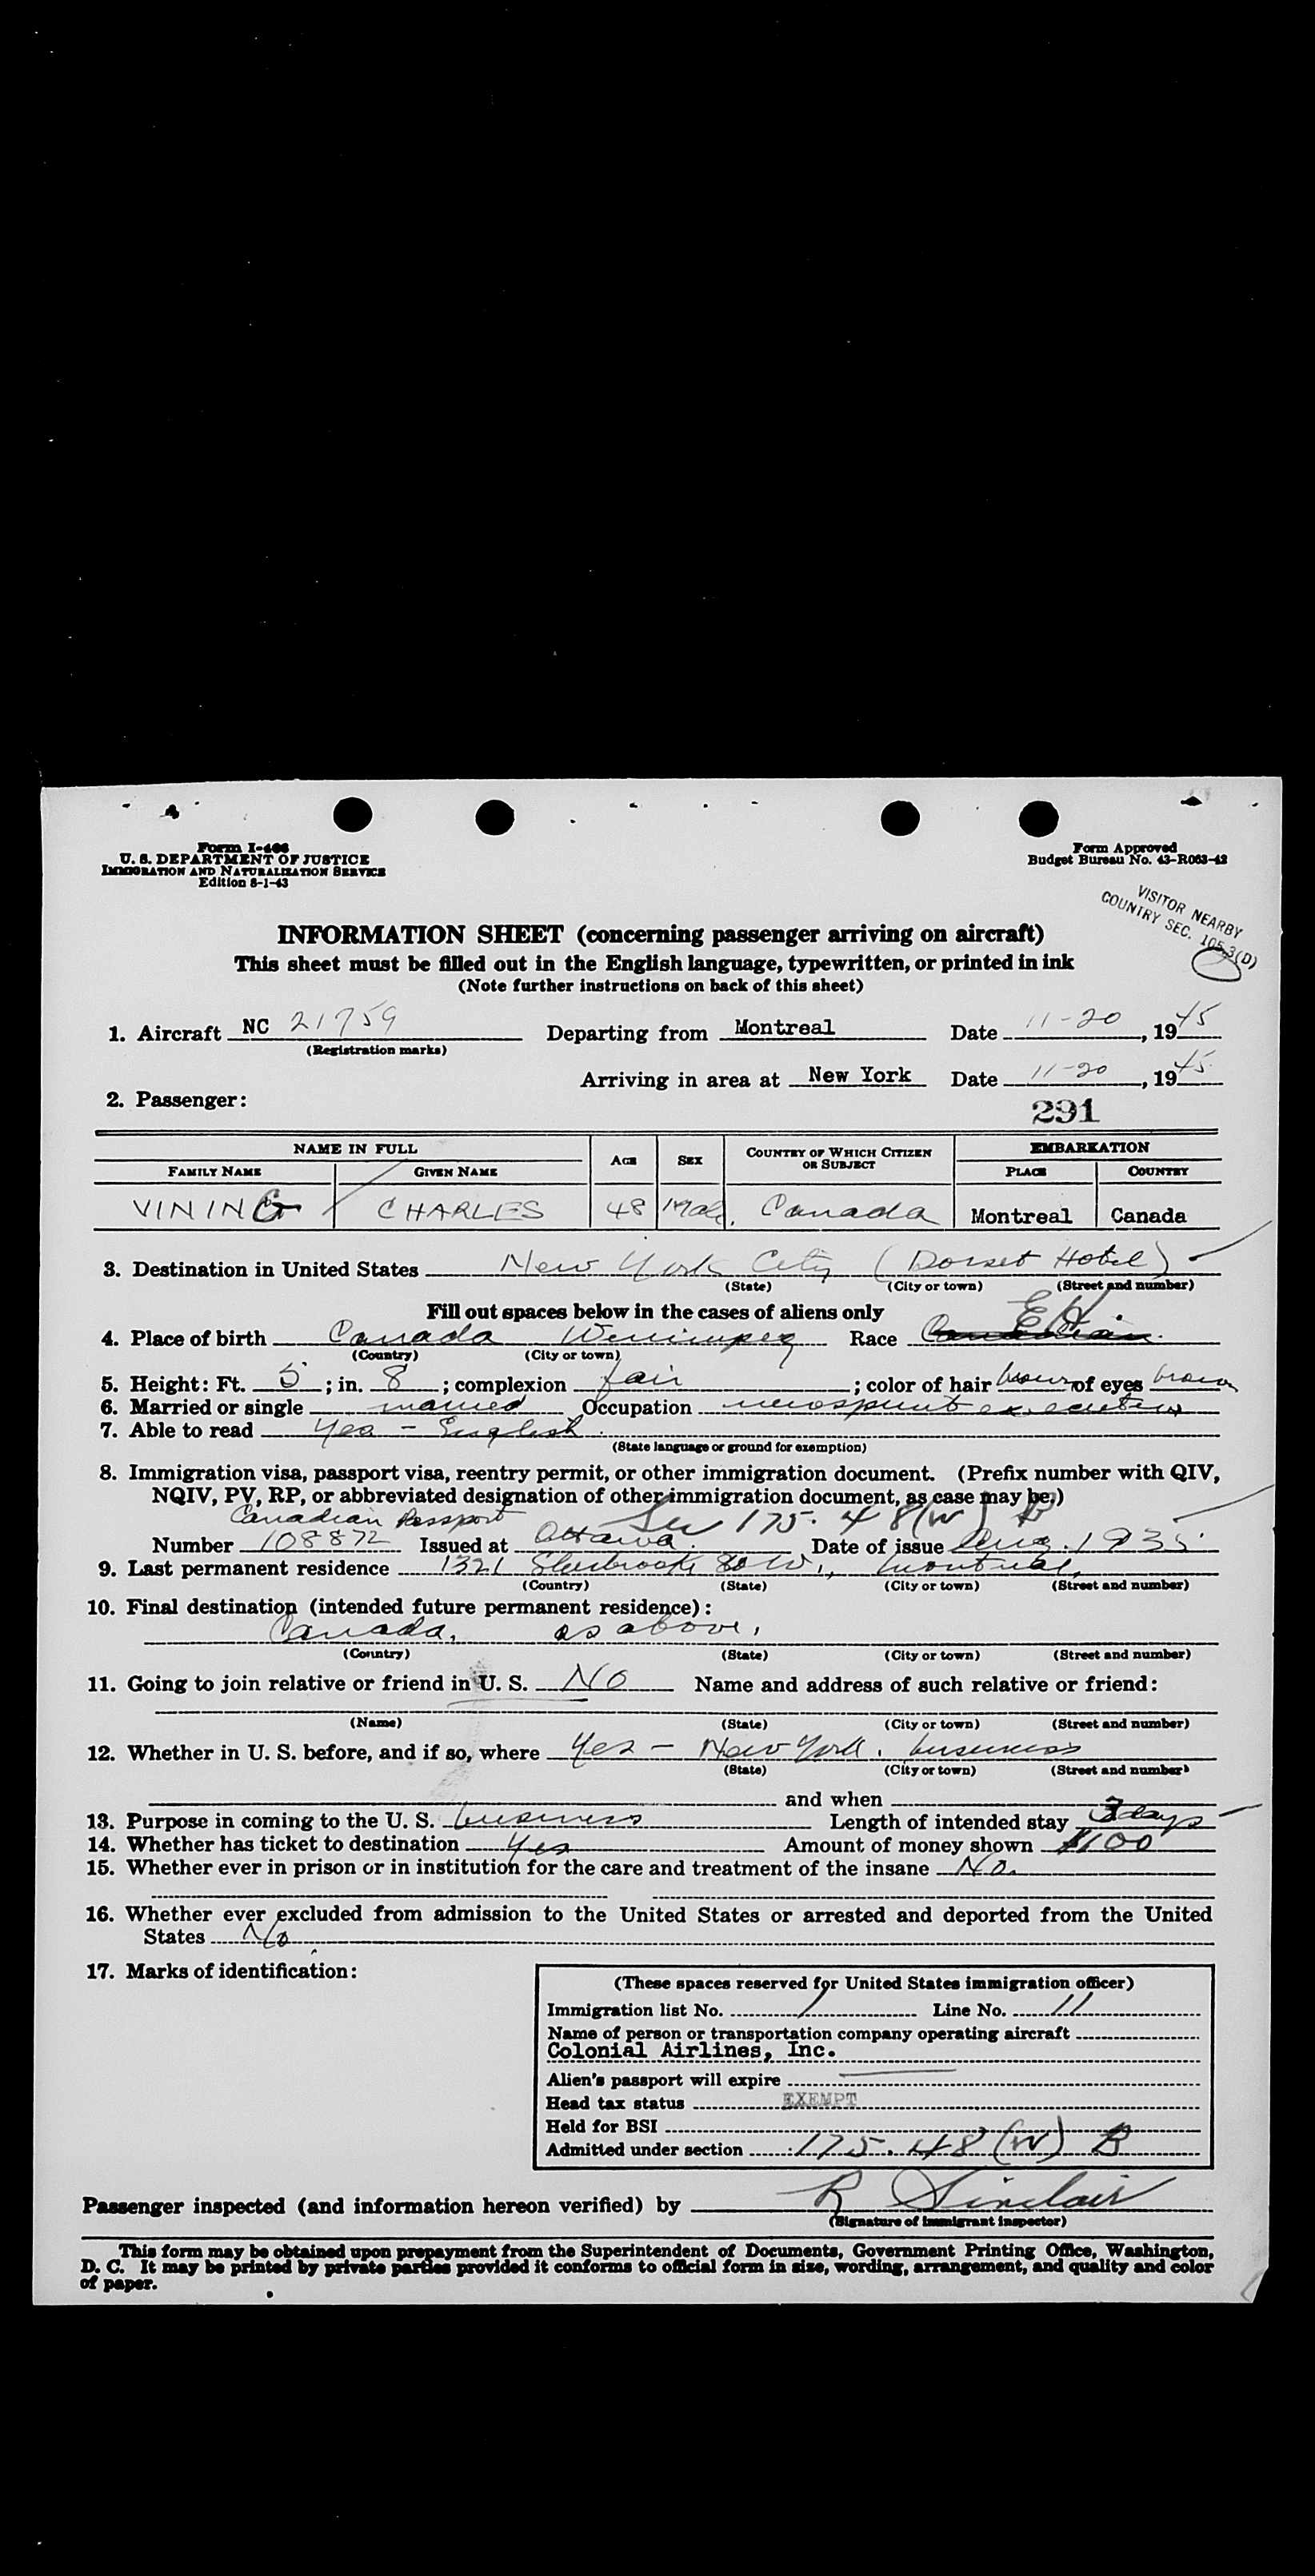 Form I-466
U. S. DEPARTMENT OF JUSTICE
IMMIGRATION AND NATURALIZATION SERVICE
Edition 8-1-43
Form Approved
Budget Bureau No. 43-R063-42
VISITOR NEARBY
COUNTRY SEC. 105.3(D)
INFORMATION SHEET (concerning passenger arriving on aircraft)
This sheet must be filled out in the English language, typewritten, or printed in ink
(Note further instructions on back of this sheet)
1. Aircraft NC 21759 Departing from Montreal Date 11-20, 1945
(Registration marks)
Arriving in area at New York Date 11-20, 1945
2. Passenger:
291
NAME IN FULL AGE SEX COUNTRY OF WHICH CITIZEN OR SUBJECT EMBARKATION
FAMILY NAME GIVEN NAME PLACE COUNTRY
VINING CHARLES 48 Male Canada Montreal Canada
3. Destination in United States New York City (Dorset Hotel)
(State) (City or town) (Street and number)
Fill out spaces below in the cases of aliens only
4. Place of birth Canada Winnipeg Race Canadian
(Country) (City or town)
5. Height: Ft. 5 ; in. 8 ; complexion fair ; color of hair brown of eyes brown
6. Married or single married Occupation newsprint executive
7. Able to read Yes - English
(State language or ground for exemption)
8. Immigration visa, passport visa, reentry permit, or other immigration document. (Prefix number with QIV,
NQIV, PV, RP, or abbreviated designation of other immigration document, as case may be.)
Canadian Passport 175.48(W) B
Number 108872 Issued at Ottawa. Date of issue Aug. 1935
9. Last permanent residence 1321 Sherbrooke St W., Montreal.
(Country) (State) (City or town) (Street and number)
10. Final destination (intended future permanent residence):
Canada. as above.
(Country) (State) (City or town) (Street and number)
11. Going to join relative or friend in U. S. No Name and address of such relative or friend:
(Name) (State) (City or town) (Street and number)
12. Whether in U. S. before, and if so, where Yes - New York. business
(State) (City or town) (Street and number)
and when
13. Purpose in coming to the U. S. business Length of intended stay 3 days
14. Whether has ticket to destination Yes Amount of money shown $100
15. Whether ever in prison or in institution for the care and treatment of the insane No.
16. Whether ever excluded from admission to the United States or arrested and deported from the United
States No
17. Marks of identification:
(These spaces reserved for United States immigration officer)
Immigration list No. 1 Line No. 11
Name of person or transportation company operating aircraft
Colonial Airlines, Inc.
Alien's passport will expire
Head tax status EXEMPT
Held for BSI
Admitted under section 175.48(W) B
Passenger inspected (and information hereon verified) by R Sinclair
(Signature of immigrant inspector)
This form may be obtained upon prepayment from the Superintendent of Documents, Government Printing Office, Washington,
D. C. It may be printed by private parties provided it conforms to official form in size, wording, arrangement, and quality and color
of paper.